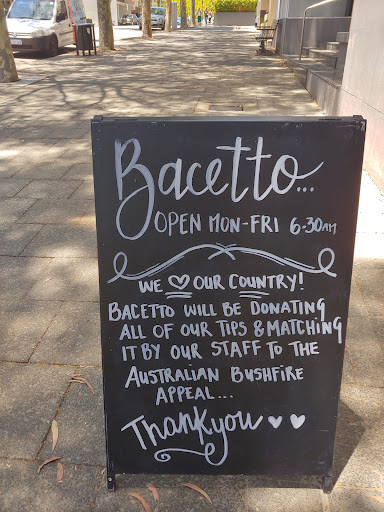 Bacetto...
OPEN MON-FRI 6-30AM
WE ♡ OUR COUNTRY!
BACETTO WILL BE DONATING
ALL OF OUR TIPS & MATCHING
IT BY OUR STAFF TO THE
AUSTRALIAN BUSHFIRE
APPEAL...
Thankyou ♥ ♥